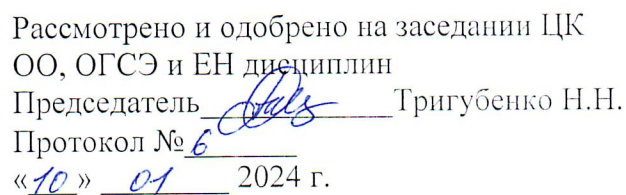 Рассмотрено и одобрено на заседании ЦК
ОО, ОГСЭ и ЕН дисциплин
Председатель Тригубенко Н.Н.
Протокол № 6
«10» 01 2024 г.